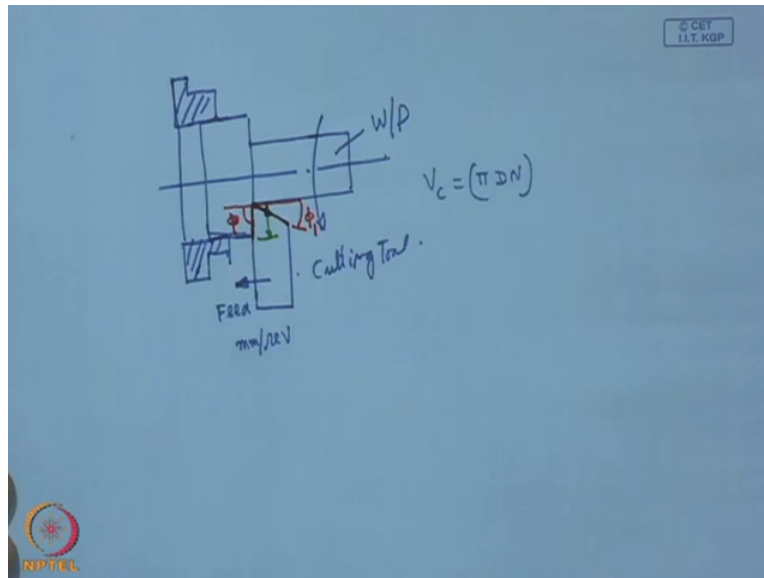 © CET
I.I.T. KGP
W/P
V_c = (π D N)
φ φ₁
Cutting Tool.
Feed
mm/rev
NPTEL